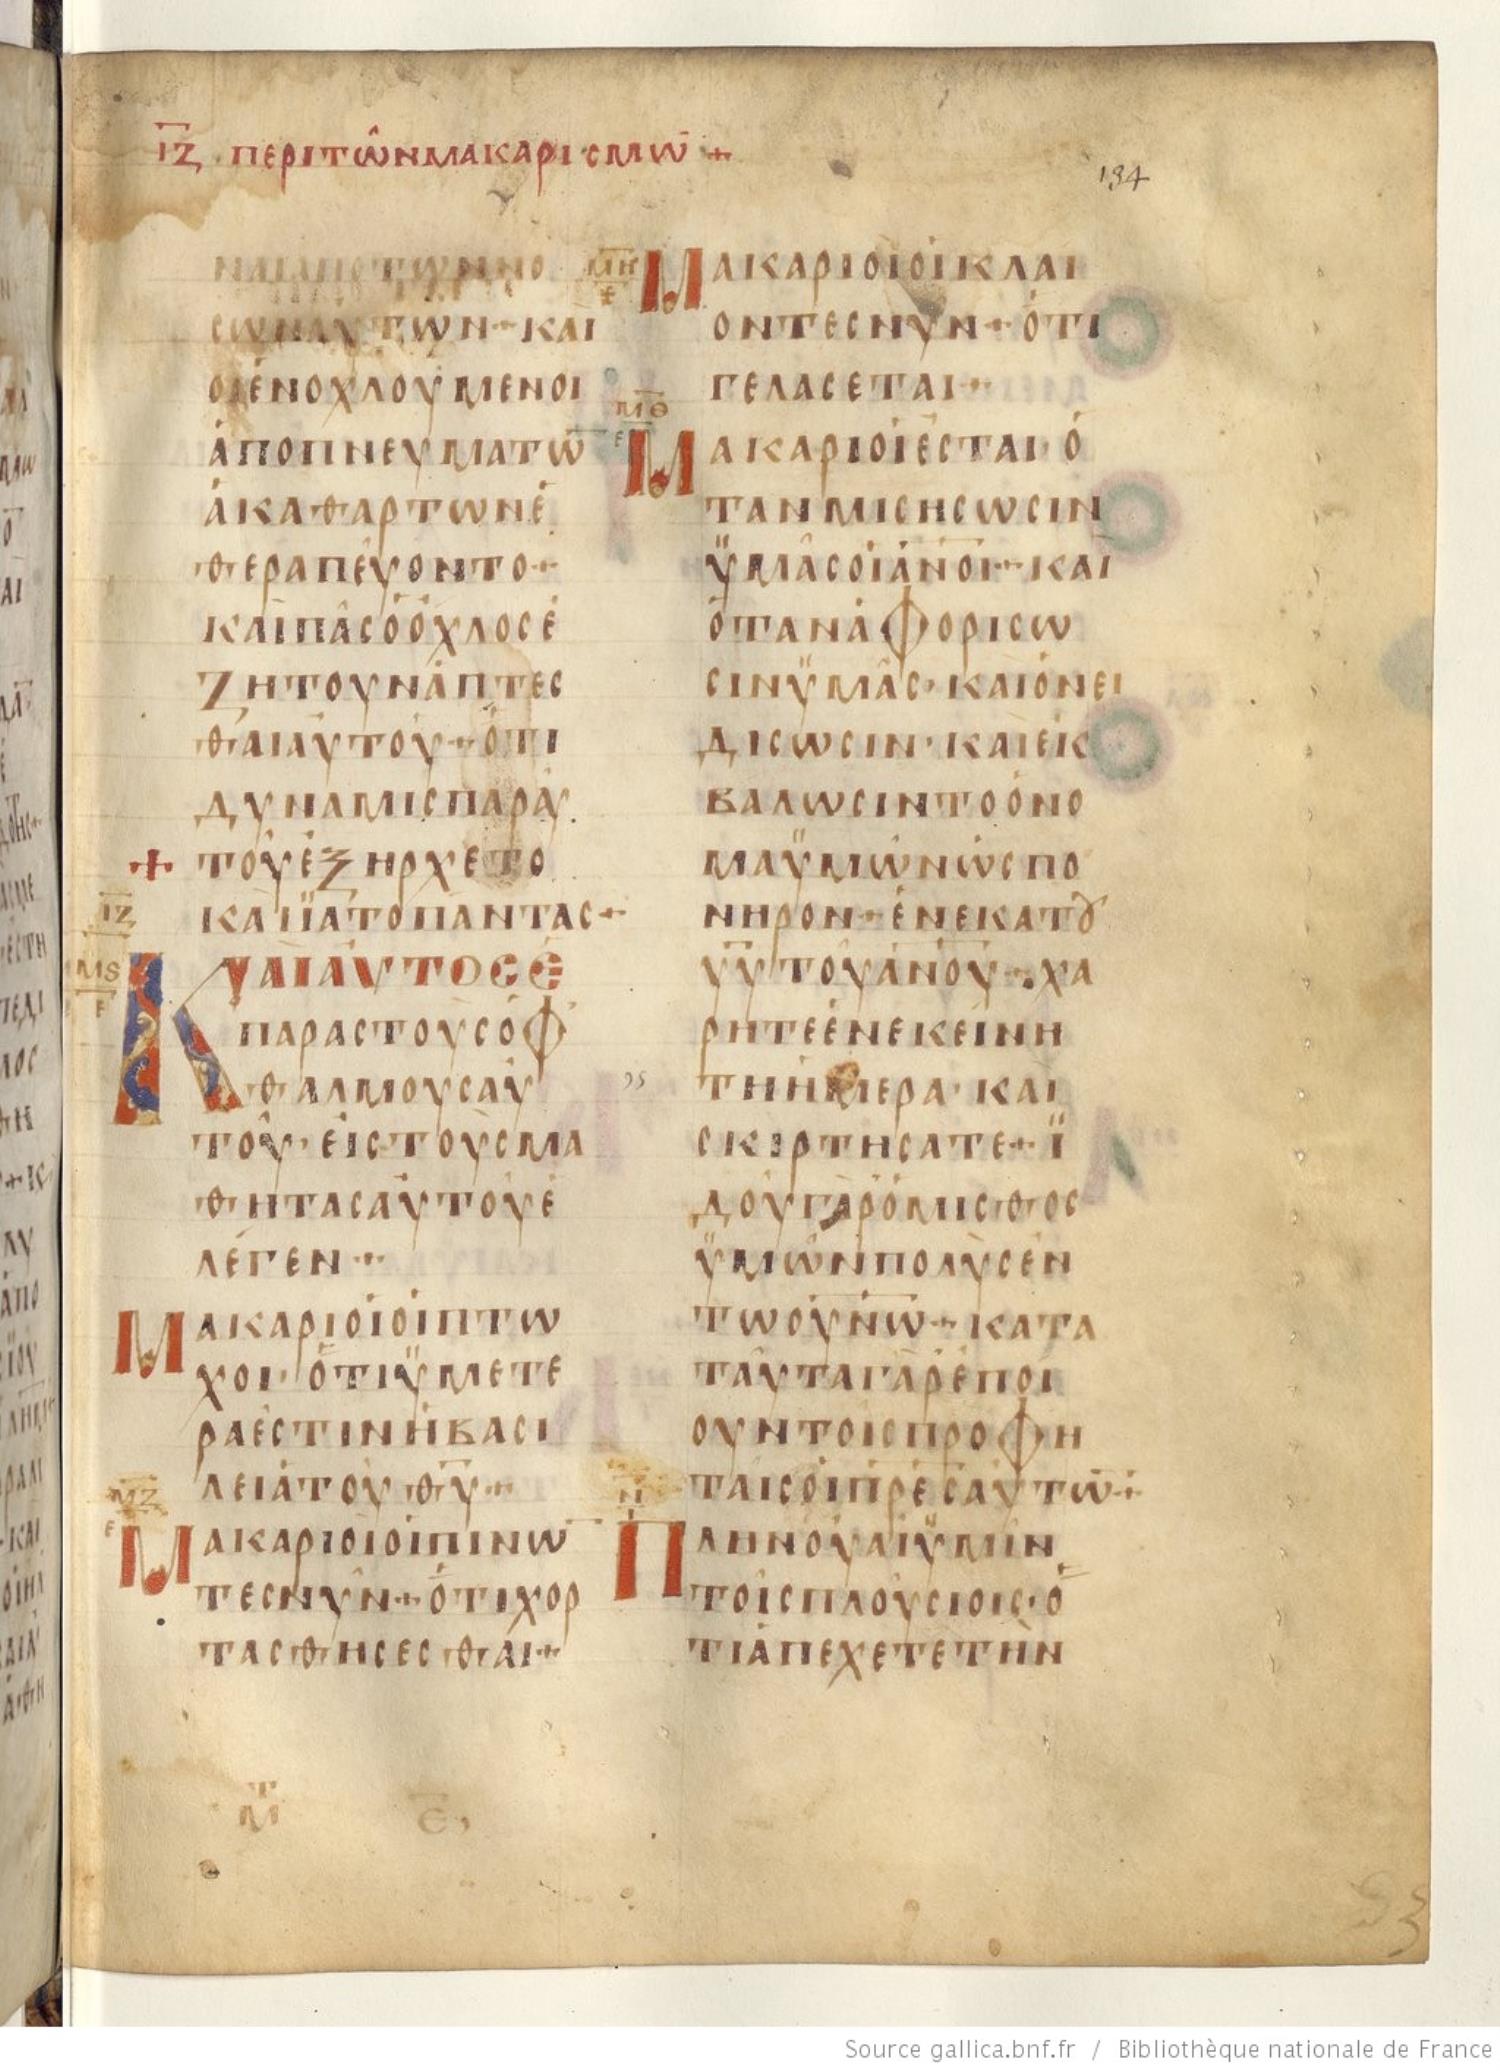 ΙΖ ΠΕΡΙΤῶΝΜΑΚΑΡΙΣΜῶ +
134
ΝΑΙΑΠΟΤΩΝΝΟ
ϹΩΝΑΥΤΩΝ·ΚΑΙ
ΟΙΕΝΟΧΛΟΥΜΕΝΟΙ
ΑΠΟΠΝΕΥΜΑΤΩ̅
ΑΚΑΘΑΡΤΩΝΕ
ΘΕΡΑΠΕΥΟΝΤΟ·
ΚΑΙΠΑϹΟΟΧΛΟϹΕ
ΖΗΤΟΥΝΑΠΤΕϹ
ΘΑΙΑΥΤΟΥ·ΟΤΙ
ΔΥΝΑΜΙϹΠΑΡΑΥ
+ ΤΟΥΕΞΗΡΧΕΤΟ
ΚΑΙΪΑΤΟΠΑΝΤΑϹ+
ΙΖ
ΜϚ
Ε
ΚΑΙΑΥΤΟϹΕ
ΠΑΡΑϹΤΟΥϹΟΦ
ΘΑΛΜΟΥϹΑΥ
ΤΟΥ·ΕΙϹΤΟΥϹΜΑ
ΘΗΤΑϹΑΥΤΟΥΕ
ΛΕΓΕΝ·
ΜΑΚΑΡΙΟΙΟΙΠΤΩ
ΧΟΙ·ΟΤΙΫΜΕΤΕ
ΡΑΕϹΤΙΝΗΒΑϹΙ
ΛΕΙΑΤΟΥΘ̅Υ̅·
ΜΖ
Ε
ΜΑΚΑΡΙΟΙΟΙΠΙΝΩ̅
ΤΕϹΝΥΝ·ΟΤΙΧΟΡ
ΤΑϹΘΗϹΕϹΘΑΙ·
ΜΗ
Ε
ΜΑΚΑΡΙΟΙΟΙΚΛΑΙ
ΟΝΤΕϹΝΥΝ·ΟΤΙ
ΓΕΛΑϹΕΤΑΙ·
ΜΘ
Ε
ΜΑΚΑΡΙΟΙΕϹΤΑΙ·Ο
ΤΑΝΜΙϹΗϹΩϹΙΝ
ΫΜΑϹΟΙΑ̅Ν̅Ο̅Ι̅·ΚΑΙ
ΟΤΑΝΑΦΟΡΙϹΩ
ϹΙΝΫΜΑϹ·ΚΑΙΟΝΕΙ
ΔΙϹΩϹΙΝ·ΚΑΙΕΚ
ΒΑΛΩϹΙΝΤΟΟΝΟ
ΜΑΫΜΩΝΩϹΠΟ
ΝΗΡΟΝ·ΕΝΕΚΑΤȢ
Υ̅Υ̅ΤΟΥΑ̅Ν̅Ο̅Υ̅·ΧΑ
ΡΗΤΕΕΝΕΚΕΙΝΗ
ΤΗΗΜΕΡΑ·ΚΑΙ
ϹΚΙΡΤΗϹΑΤΕ·Ϊ
ΔΟΥΓΑΡΟΜΙϹΘΟϹ
ΫΜΩΝΠΟΛΥϹΕΝ
ΤΩΟ̅Υ̅Ν̅Ω̅·ΚΑΤΑ
ΤΑΥΤΑΓΑΡΕΠΟΙ
ΟΥΝΤΟΙϹΠΡΟΦΗ
ΤΑΙϹΟΙΠ̅Ρ̅Ε̅Ϲ̅ΑΥΤΩ̅·
Ν
ΠΛΗΝΟΥΑΙΫΜΙΝ
ΤΟΙϹΠΛΟΥϹΙΟΙϹ·Ο
ΤΙΑΠΕΧΕΤΕΤΗΝ
Source gallica.bnf.fr / Bibliothèque nationale de France